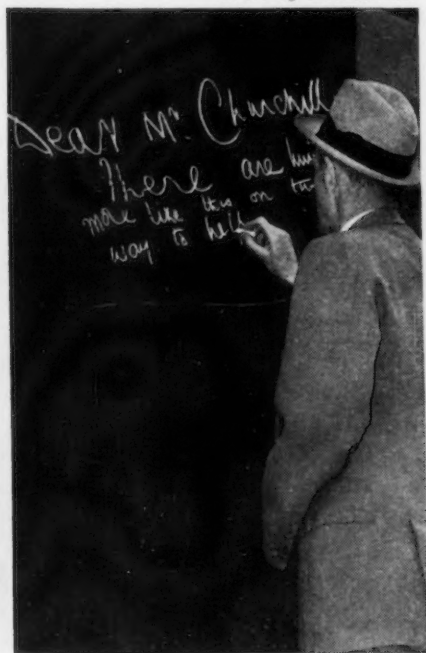 Dear Mr. Churchill
There are
more like this on
way to